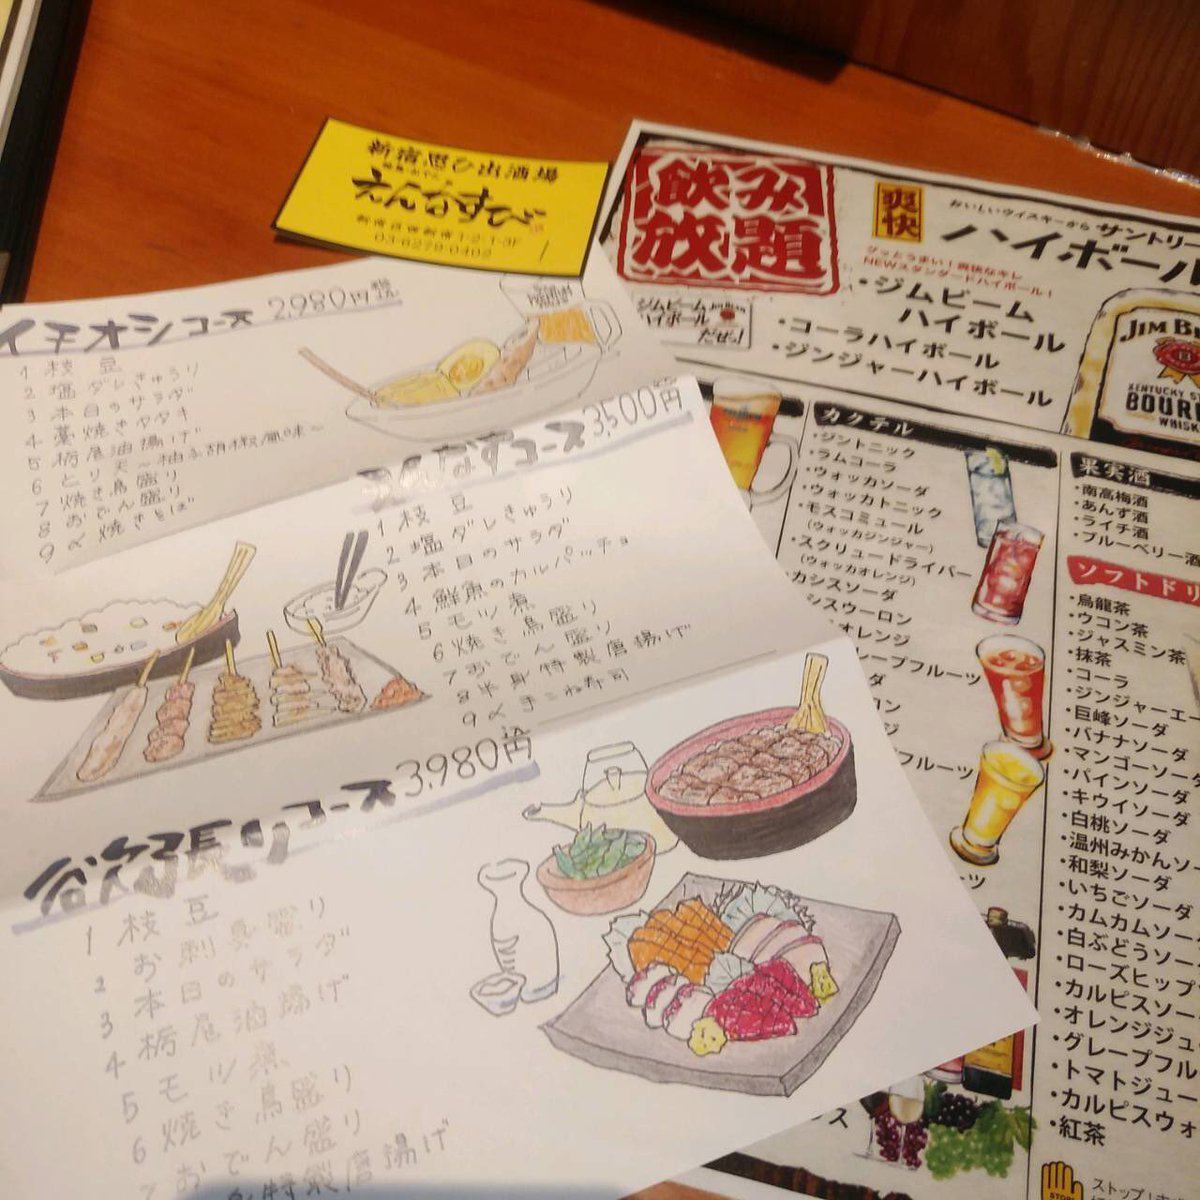 新宿思ひ出酒場
えんむすび
新宿区西新宿1-2-1-3F
03-6279-0402
イチオシコース 2,980円
1 枝豆
2 塩ダレきゅうり
3 本日のサラダ
4 藁焼きタタキ
5 栃尾油揚げ
6 とり天〜柚子胡椒風味〜
7 焼き鳥盛り
8 おでん盛り
9 〆焼きそば
コース 3,500円
1 枝豆
2 塩ダレきゅうり
3 本日のサラダ
4 鮮魚のカルパッチョ
5 モツ煮
6 焼き鳥盛り
7 おでん盛り
8 半身特製唐揚げ
9 〆手こね寿司
欲張りコース 3,980円
1 枝豆
2 お刺身盛り
3 本日のサラダ
4 栃尾油揚げ
5 モツ煮
6 焼き鳥盛り
7 おでん盛り
特製唐揚げ
飲み
放題
爽快
おいしいウイスキーから サントリー
ハイボール
グッとうまい!爽快なキレ
NEWスタンダードハイボール!
ジムビーム
ハイボール
だぜっ!
・ジムビーム
ハイボール
・コーラハイボール
・ジンジャーハイボール
JIM BE
KENTUCKY
BOUR
WHISK
カクテル
・ジントニック
・ラムコーラ
・ウォッカソーダ
・ウォッカトニック
・モスコミュール
(ウォッカジンジャー)
・スクリュードライバー
(ウォッカオレンジ)
カシスソーダ
シスウーロン
オレンジ
レープフルーツ
ダ
ロン
ジ
フルーツ
ーツ
ス
果実酒
・南高梅酒
・あんず酒
・ライチ酒
・ブルーベリー酒
ソフトドリ
・烏龍茶
・ウコン茶
・ジャスミン茶
・抹茶
・コーラ
・ジンジャーエー
・巨峰ソーダ
・バナナソーダ
・マンゴーソーダ
・パインソーダ
・キウイソーダ
・白桃ソーダ
・温州みかんソー
・和梨ソーダ
・いちごソーダ
・カムカムソー
・白ぶどうソー
・ローズヒップ
・カルピスソー
・オレンジジュー
・グレープフル
・トマトジュー
・カルピスウォ
・紅茶
STOP
ストップ!